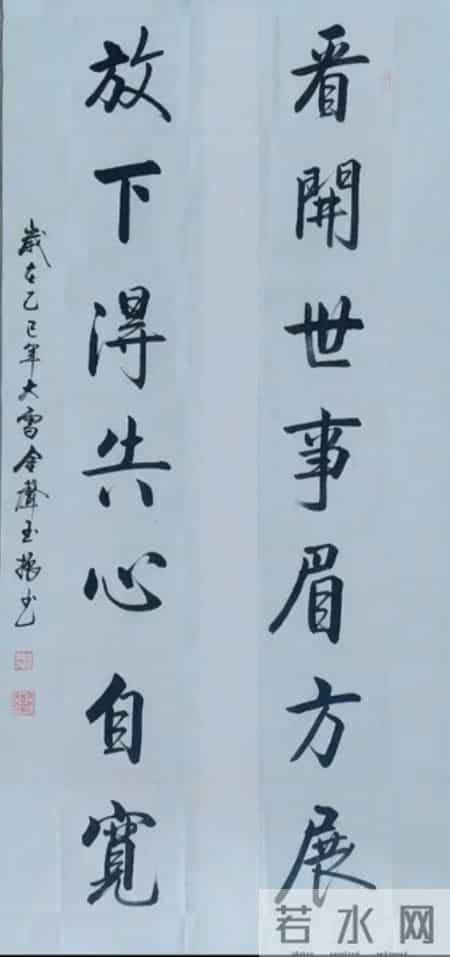 看開世事眉方展
放下得失心自寬
歲在乙巳年大雪金聲玉振書
若水网